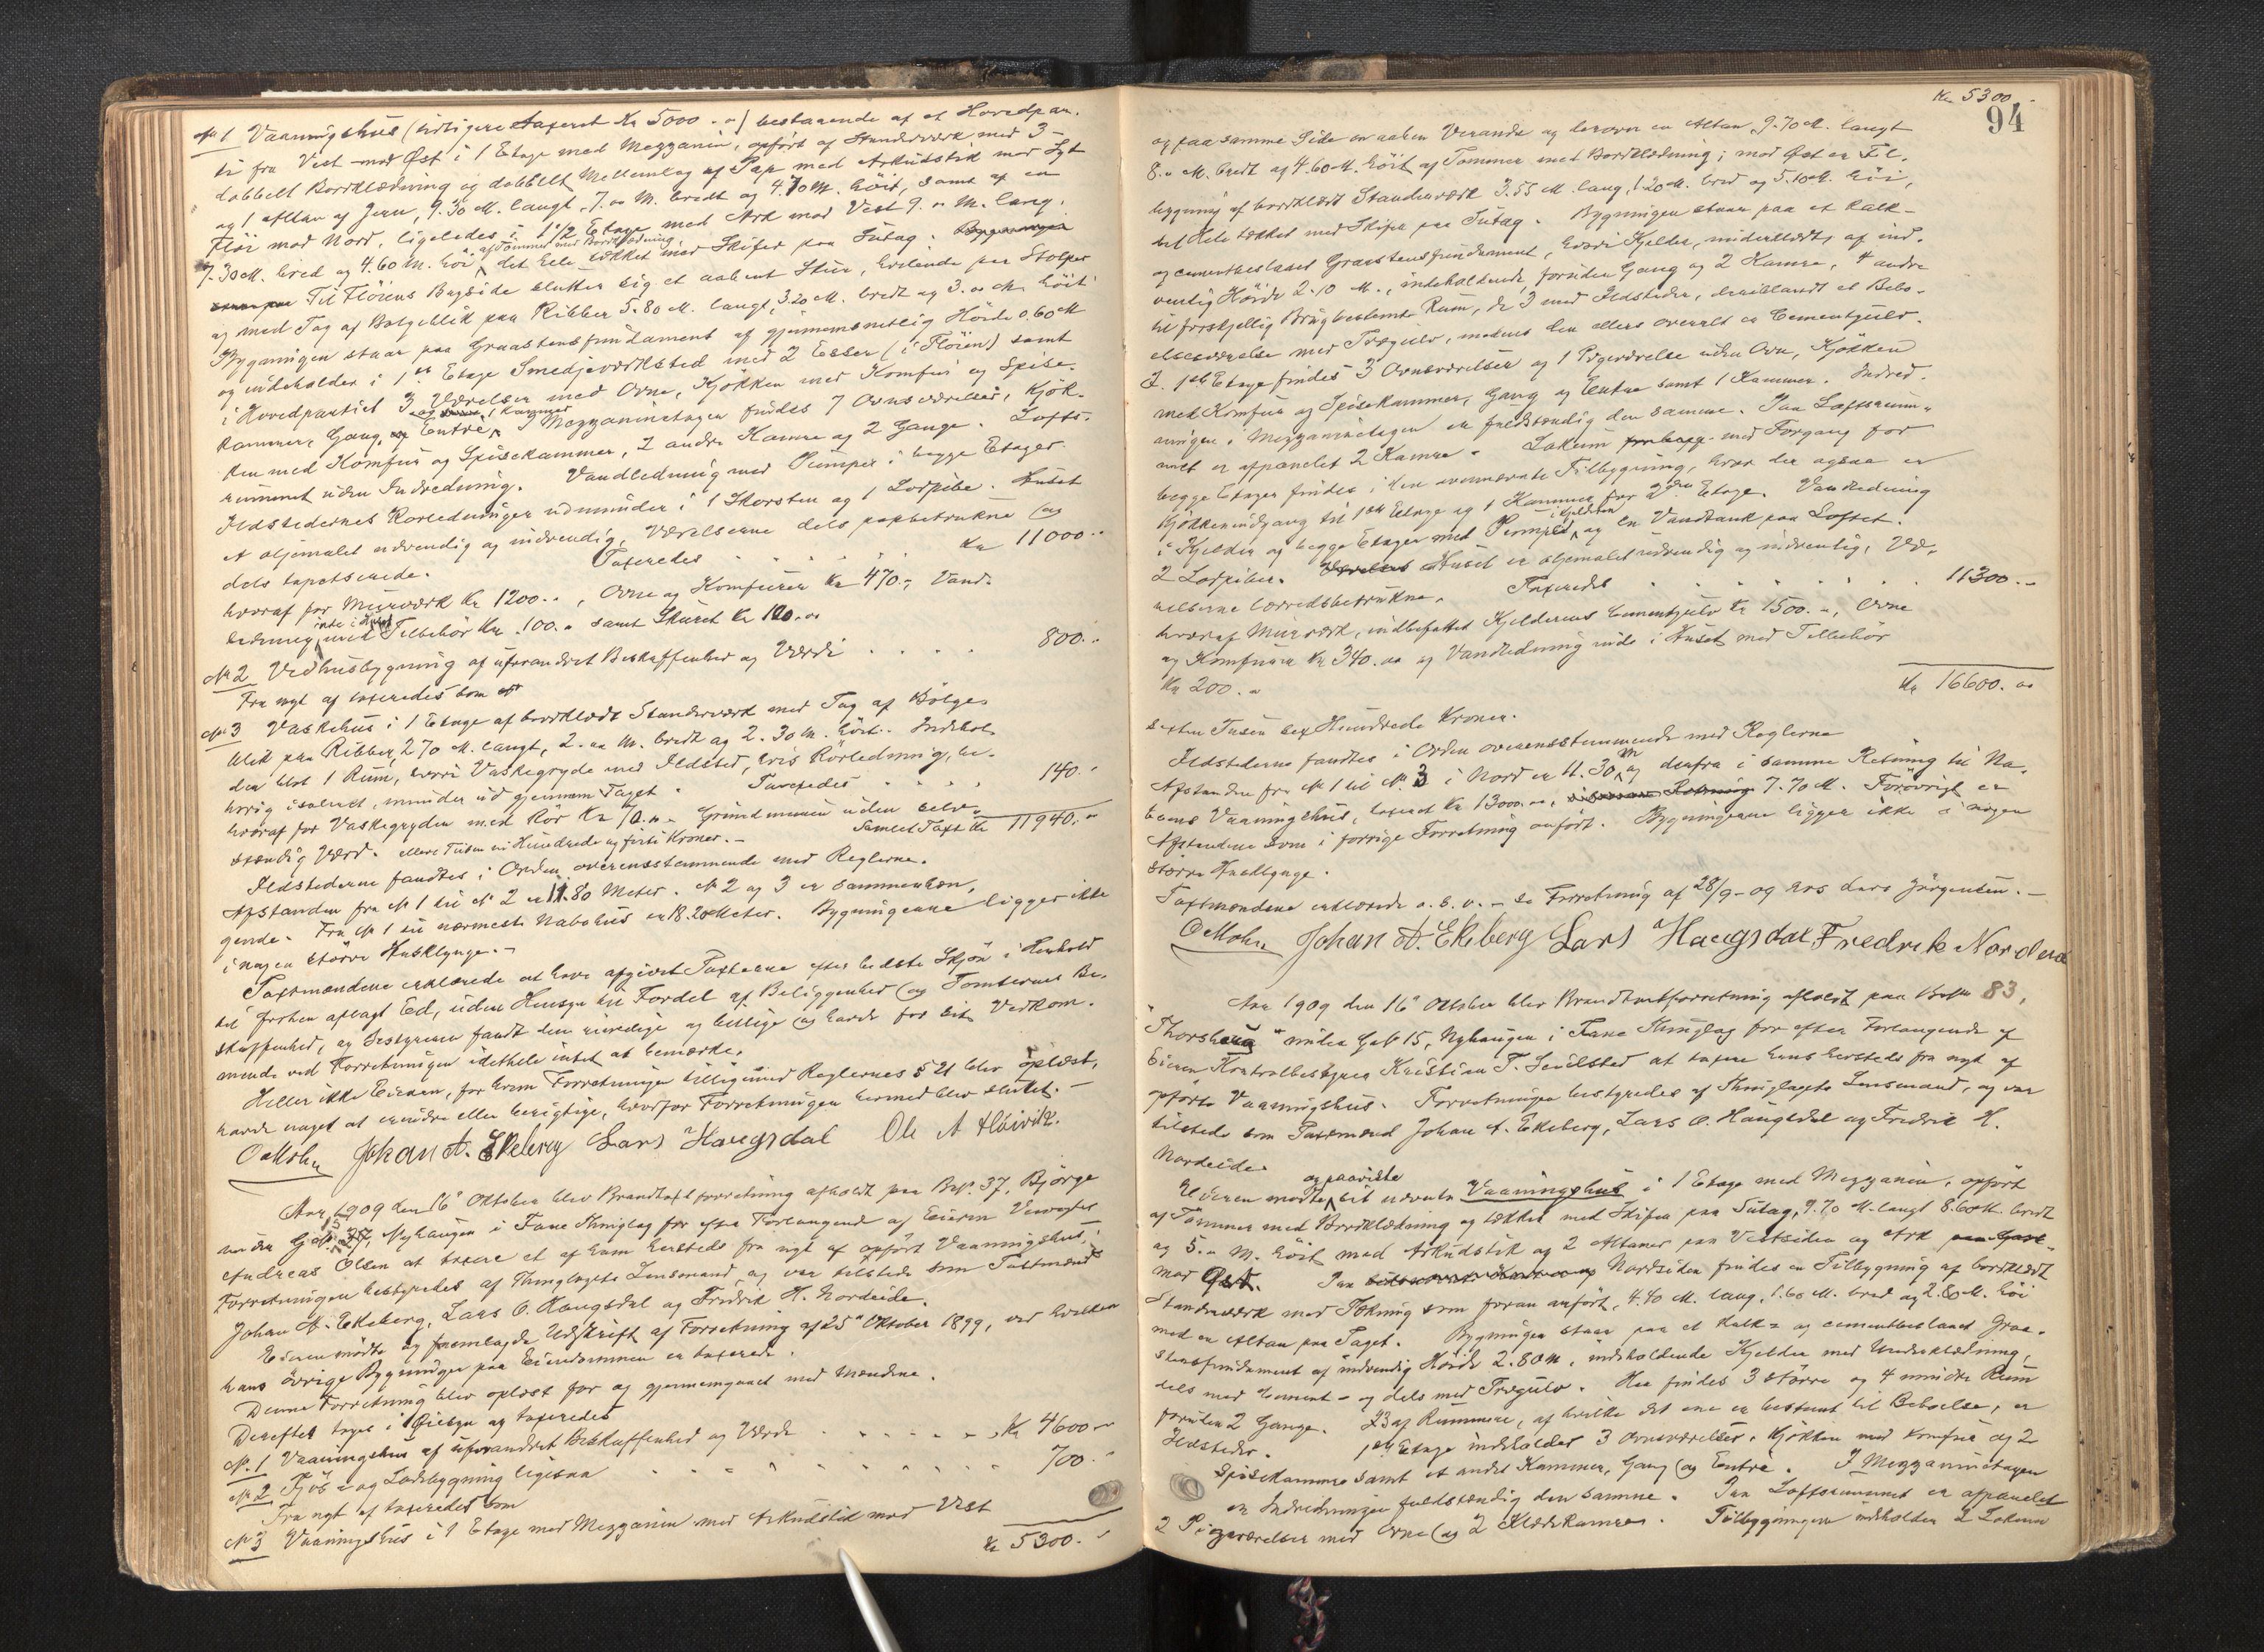 No 1 Vaaningshus (tidligere taxeret Kr 5000.-) bestaaende af et Hovedpar-
ti fra Vest mod Øst i 1 Etage med Mezzanin, opført af Standerværk med 3-
dobbelt Bordklædning og dobbelt Mellemlag af Pap med Arkudstik mod Syd
og 1 Altan af Jern, 9.30 M. langt, 7.oo M. bredt og 4.70 M. høit, samt af en
Fløi mod Nord, ligeledes i 1 1/2 Etage med Ark mod Vest 9.oo M. lang,
af Tømmer med Bordklædning
7.30 M. bred og 4.60 M. høi, det hele tækket med Skifer paa Sutag. Bygningen
staar paa Til Fløiens Bagside slutter sig et aabent Skur, hvilende paa Stolper
og med Tag af Bølgeblik paa Ribber 5.80 M. langt, 3.20 M. bredt og 3.oo M. høit
Bygningen staar paa Graastensfundament af gjennemsnitlig Høide 0.60 M
og indeholder i 1ste Etage Smedjeværksted med 2 Esser (i Fløien) samt
i Hovedpartiet 3 Værelser med Ovne, Kjøkken med Komfur og Spise-
og 1 Kammer
kammer, Gang, og Entre. I Mezzaninetagen findes 7 Ovnsværelser, Kjøk-
ken med Komfur og Spisekammer, 2 andre Kamre og 2 Gange. Lofts-
rummet uden Indredning. Vandledning med Pumper i begge Etager
Ildstedernes Rørledninger udmunder i 1 Skorsten og 1 Lodpibe. Huset
et oljemalet udvendig og indvendig, Værelserne dels papbetrukne og
dels tapetserede. Taxeredes . . . . . Kr 11000..
hvoraf for Murværk Kr 1200.., Ovne og Komfurer Kr 470.-, Vand-
inde i Huset
ledning med Tilbehør Kr. 100.- samt Skuret Kr 120.oo
No 2 Vedhusbygning af uforandret Beskaffenhed og Værdi . . . . 800..
Fra nyt af taxeredes som
No 3 Vaskehus i 1 Etage af bordklædt Standerværk med Tag af Bølge-
blik paa Ribber, 2.70 M. langt, 2.oo M. bredt og 2.30 M. høit. Indehol-
der blot 1 Rum, hvori Vaskegryde med Ildsted, hvis Rørledning, be-
hørig isoleret, munder ud gjennem Taget. Taxeredes . . . . 140..
hvoraf for Vaskegryden med Rør Kr 70.-. Grundmuren uden selv-
stændig Værd. Samlet Taxt Kr 11940.-
elleve Tusen ni Hundrede og førti Kroner.-
Ildstederne fandtes i Orden overensstemmende med Reglerne.
Afstanden fra No 1 til No 2 er 11.80 Meter. No 2 og 3 er sammenhæn-
gende. Fra No 1 til nærmeste Nabohus er 18.20 Meter. Bygningerne ligger ikke
i nogen større Husklynge.-
Taxtmændene erklærede at have afgivet Taxterne efter bedste Skjøn i Henhold
til forhen aflagt Ed, uden Hensyn til Fordel af Beliggenhed og Tomternes Be-
skaffenhed, og Bestyreren fandt dem rimelige og billige og havde for sit Vedkom-
mende ved Forretningen idethele intet at bemærke.
Heller ikke Eieren, for hvem Forretningen tilligemed Reglernes § 21 blev oplæst,
havde noget at erindre eller berigtige, hvorfor Forretningen hermed blev sluttet.-
O Mohn Johan A. Ekeberg Lars Haugsdal Ole A Høivik.
Aar 1909 den 16de Oktober blev Brandtaxtforretning afholdt paa Bno. 37, Bjørge
under Gno. 15, Nyhaugen i Fane Thinglag for efter Forlangende af Eieren
Andreas Olsen at taxere et af ham hersteds fra nyt af opført Vaaningshus.
Forretningen bestyredes af Thinglagets Lensmand, og var tilstede som Taxtmænd
Johan A. Ekeberg, Lars O. Haugsdal og Fredrik H. Nordeide.
Eieren mødte og fremlagde Udskrift af Forretning af 25de Oktober 1899, ved hvilken
hans øvrige Bygninger paa Eiendommen er taxerede.
Denne Forretning blev oplæst for og gjennemgaaet med Mændene.
Derefter toges i Øiesyn og taxeredes
No. 1 Vaaningshus af uforandret Beskaffenhed og Værdi . . . . . Kr 4600.-
No 2 Fjøs- og Ladebygning ligesaa . . . . . 700.-
Fra nyt af taxeredes som
No 3 Vaaningshus i 1 Etage med Mezzanin med Arkudstik mod Vest
Kr 5300.-
Kr 5300.-
94
og paa samme Side en aaben Veranda og derover en Altan, 9.70 M. langt
8.oo M. bredt og 4.60 M. høit af Tømmer med Bordklædning; mod Øst en Til-
bygning af bordklædt Standerværk 3.55 M. lang, 1.20 M. bred og 5.10 M. høi,
det Hele tækket med Skifer paa Sutag. Bygningen staar paa et kalk-
og cementbeslaaet Graastensfundament, hvori Kjelder, underklædt, af ind-
vendig Høide 2.10 M., indeholdende foruden Gang og 2 Kamre, 4 andre
til forskjellig Brug bestemte Rum, de 3 med Ildsteder, deriblandt et Bebo-
elsesværelse med Trægulv, medens den ellers overalt er Cementgulv.
I 1ste Etage findes 3 Ovnsværelser og 1 Pigeværelse uden Ovn, Kjøkken
med Komfur og Spisekammer, Gang og Entre samt 1 Kammer. Indred-
ningen i Mezzaninetagen er fuldstændig den samme. Paa Loftsrum-
met er afpanelet 2 Kamre. Lokum med Forgang for
begge Etager findes i den ovennævnte Tilbygning, hvor der ogsaa er
Kjøkkenindgang til 1ste Etage og 1 Kammer for 2den Etage. Vandledning
i Kjelderen
i Kjelder og begge Etager med Pumpe og en Vandtank paa Loftet.
2 Lodpiber. Værelser Huset er oljemalet udvendig og indvendig, Væ-
relserne lærredsbetrukne. Taxeredes . . . . . 11300.-
hvoraf Murværk, indbefattet Kjelderens Cementgulv Kr 1500.-, Ovne
og Komfurer Kr 340.oo og Vandledning inde i Huset med Tilbehør
Kr 200.-
Kr 16600.oo
sexten Tusen sex Hundrede Kroner.
Ildstederne fandtes i Orden overensstemmende med Reglerne
Afstanden fra No 1 til No. 3 i Nord er 11.30 M og derfra i samme Retning til Na-
boens Vaaningshus, taxeret Kr 13000.-, 7.70 M. Forøvrigt er
Afstandene som i forrige Forretning anført. Bygningerne ligger ikke i nogen
større Husklynge.
Taxtmændene erklærede o.s.v. - se Forretning af 28/9-09 hos Lars Jørgensen.-
O Mohn Johan A. Ekeberg Lars Haugsdal Fredrik Nordeide
Aar 1909 den 16de Oktober blev Brandtaxtforretning afholdt paa Bno 83,
"Thorsberg" under Gno 15, Nyhaugen i Fane Thinglag for efter Forlangende af
Eieren Kontrolbestyrer Kristian T. at taxere hans hersteds fra nyt af
opførte Vaaningshus. Forretningen bestyredes af Thinglagets Lensmand, og var
tilstede som Taxtmænd Johan A. Ekeberg, Lars O. Haugsdal og Fredrik H.
Nordeide.
og paaviste
Eieren mødte sit nævnte Vaaningshus i 1 Etage med Mezzanin, opført
af Tømmer med Bordklædning og tækket med Skifer paa Sutag, 9.70 M. langt 8.60 M. bredt
og 5.oo M. høit med Arkudstik og 2 Altaner paa Vestsiden og Ark
mod Øst. Paa Nordsiden findes en Tilbygning af bordklædt
Standerværk med Tækning som foran anført, 4.40 M. lang, 1.60 M. bred og 2.80 M. høi
med en Altan paa Taget. Bygningen staar paa et kalk- og cementbeslaaet Graa-
stensfundament af indvendig Høide 2.80 M, indeholdende Kjelder med Underklædning,
dels med Cement- og dels med Trægulv. Her findes 3 større og 4 mindre Rum
foruden 2 Gange. I 3 af Rummene, af hvilke det ene er bestemt til Beboelse, er
Ildsteder. 1ste Etage indeholder 3 Ovnsværelser, Kjøkken med Komfur og 2
Spisekammere samt et andet Kammer, Gang og Entre. I Mezzaninetagen
er Indredningen fuldstændig den samme. Paa Loftsrummet er afpanelet
2 Pigeværelser med Ovne og 2 Klædekamre. Tilbygningen indeholder 2 Lokum